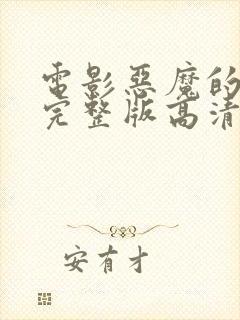 電影惡魔的
完整版高清
安有才